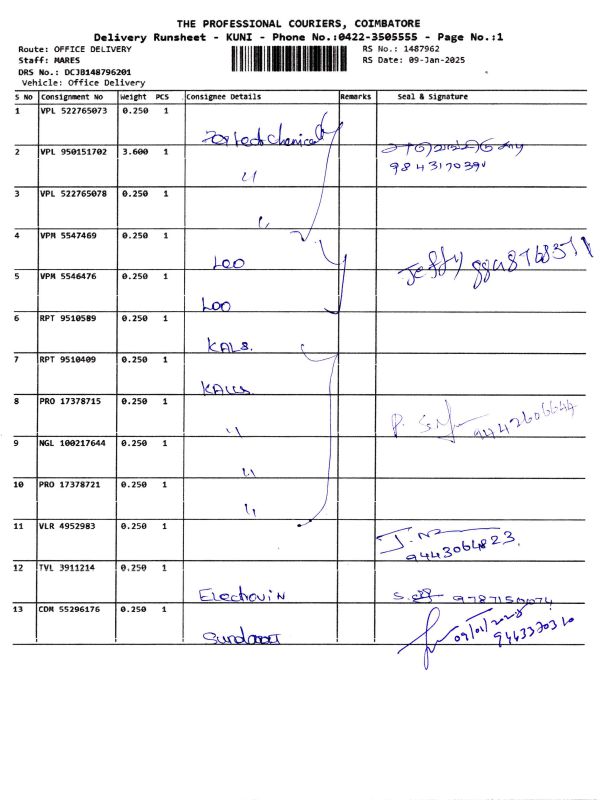 THE PROFESSIONAL COURIERS, COIMBATORE
Delivery Runsheet - KUNI - Phone No.:0422-3505555 - Page No.:1
Route: OFFICE DELIVERY RS No.: 1487962
Staff: MARES RS Date: 09-Jan-2025
DRS No.: DCJB148796201
Vehicle: Office Delivery
S No Consignment No Weight PCS Consignee Details Remarks Seal & Signature
1 VPL 522765073 0.250 1
2 VPL 950151702 3.600 1
3 VPL 522765078 0.250 1
4 VPM 5547469 0.250 1 Leo
5 VPM 5546476 0.250 1 Jeffy
6 RPT 9510589 0.250 1 KALS.
7 RPT 9510409 0.250 1
8 PRO 17378715 0.250 1 9442606644
9 NGL 100217644 0.250 1
10 PRO 17378721 0.250 1
11 VLR 4952983 0.250 1 9443064823.
12 TVL 3911214 0.250 1
13 CDM 55296176 0.250 1 09/01/2025